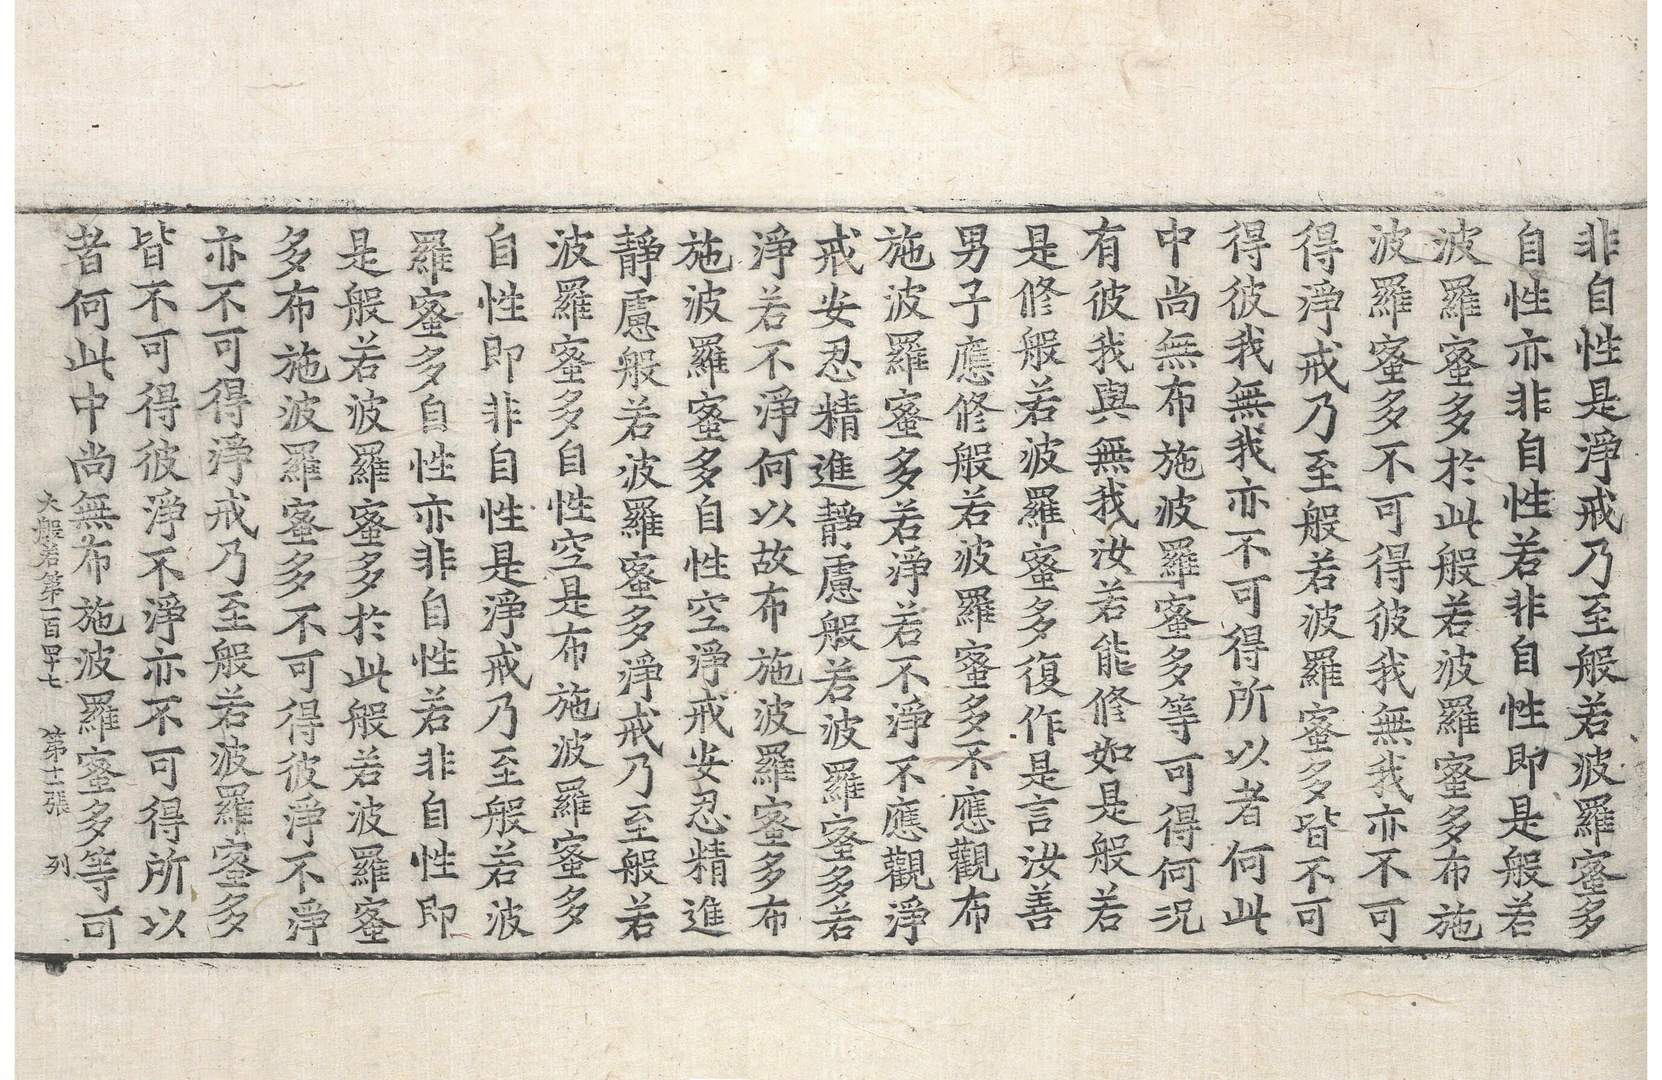 非自性是淨戒乃至般若波羅蜜多
自性亦非自性若非自性即是般若
波羅蜜多於此般若波羅蜜多布施
波羅蜜多不可得彼我無我亦不可
得淨戒乃至般若波羅蜜多皆不可
得彼我無我亦不可得所以者何此
中尚無布施波羅蜜多等可得何況
有彼我與無我汝若能修如是般若
是修般若波羅蜜多復作是言汝善
男子應修般若波羅蜜多不應觀布
施波羅蜜多若淨若不淨不應觀淨
戒安忍精進靜慮般若波羅蜜多若
淨若不淨何以故布施波羅蜜多布
施波羅蜜多自性空淨戒安忍精進
靜慮般若波羅蜜多淨戒乃至般若
波羅蜜多自性空是布施波羅蜜多
自性即非自性是淨戒乃至般若波
羅蜜多自性亦非自性若非自性即
是般若波羅蜜多於此般若波羅蜜
多布施波羅蜜多不可得彼淨不淨
亦不可得淨戒乃至般若波羅蜜多
皆不可得彼淨不淨亦不可得所以
者何此中尚無布施波羅蜜多等可
大般若第一百四十七 第十二張 列